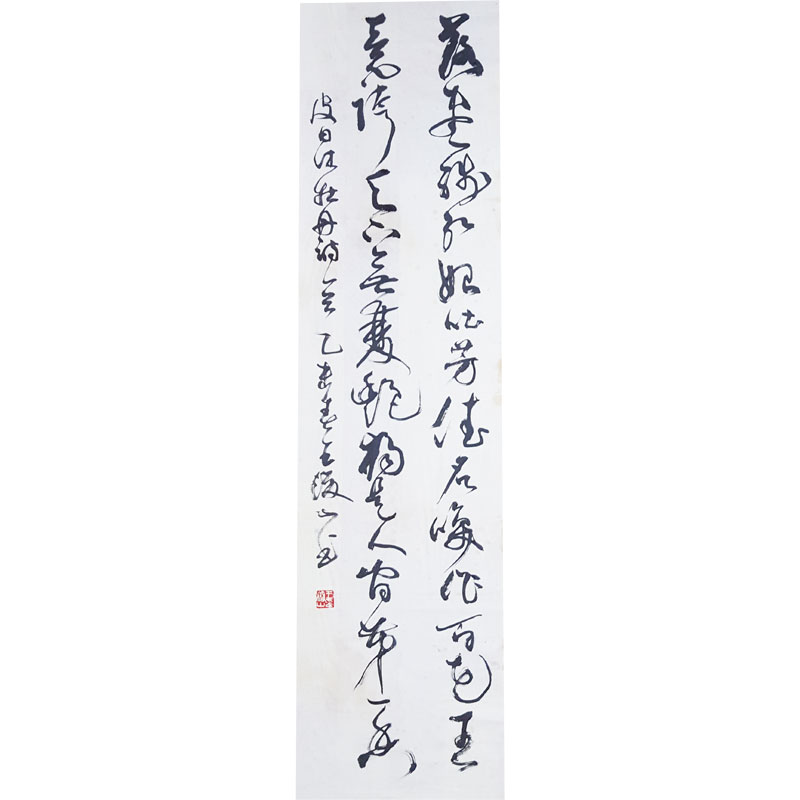 落盡殘紅始吐芳佳名喚作百花王
竟誇天下無雙艷獨是人間第一香
皮日休牡丹詩一首 乙未春王山書